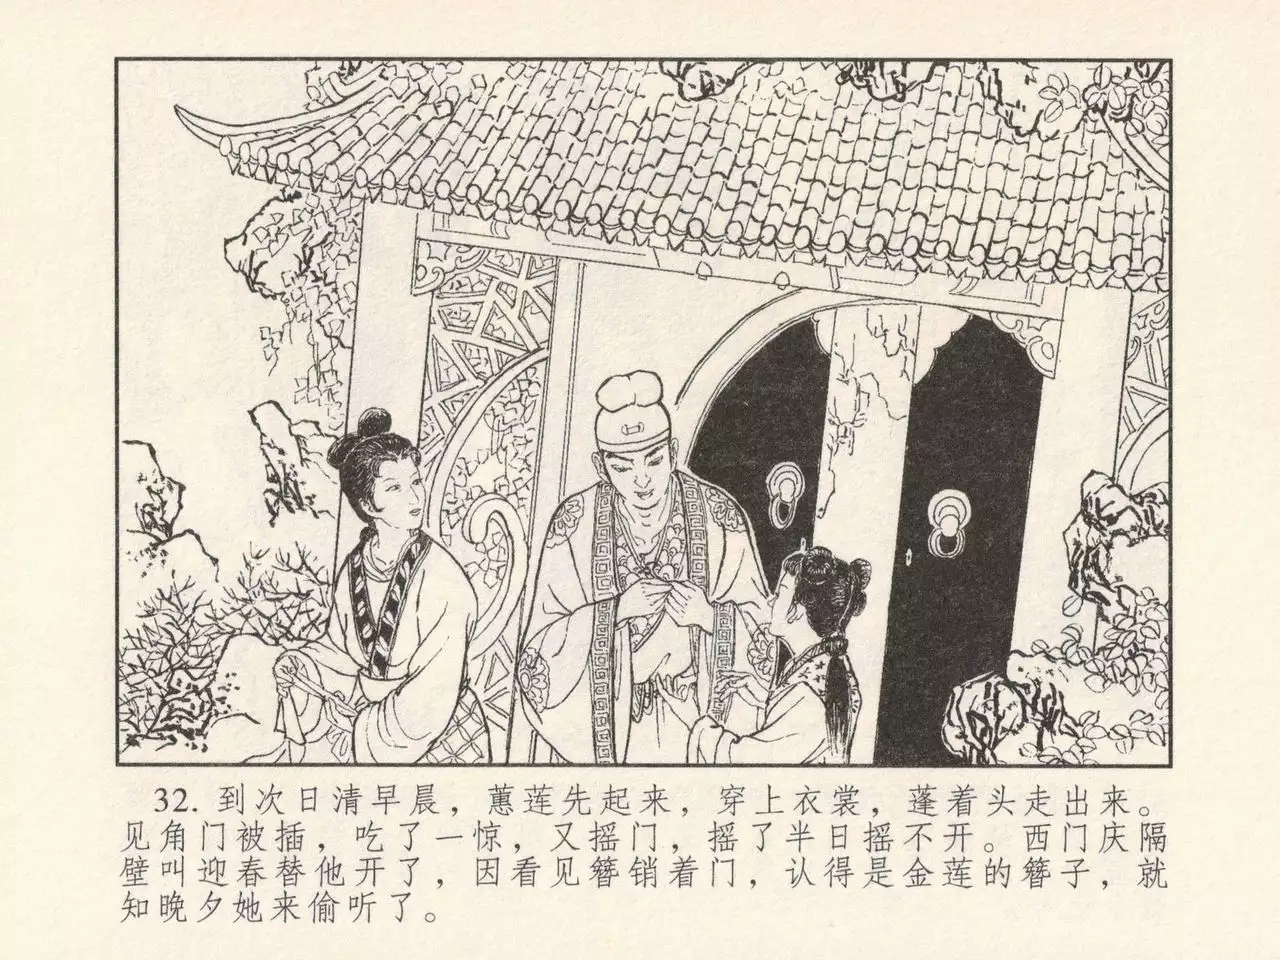 32. 到次日清早晨，蕙莲先起来，穿上衣裳，蓬着头走出来。
见角门被插，吃了一惊，又摇门，摇了半日摇不开。西门庆隔
壁叫迎春替他开了，因看见簪销着门，认得是金莲的簪子，就
知晚夕她来偷听了。